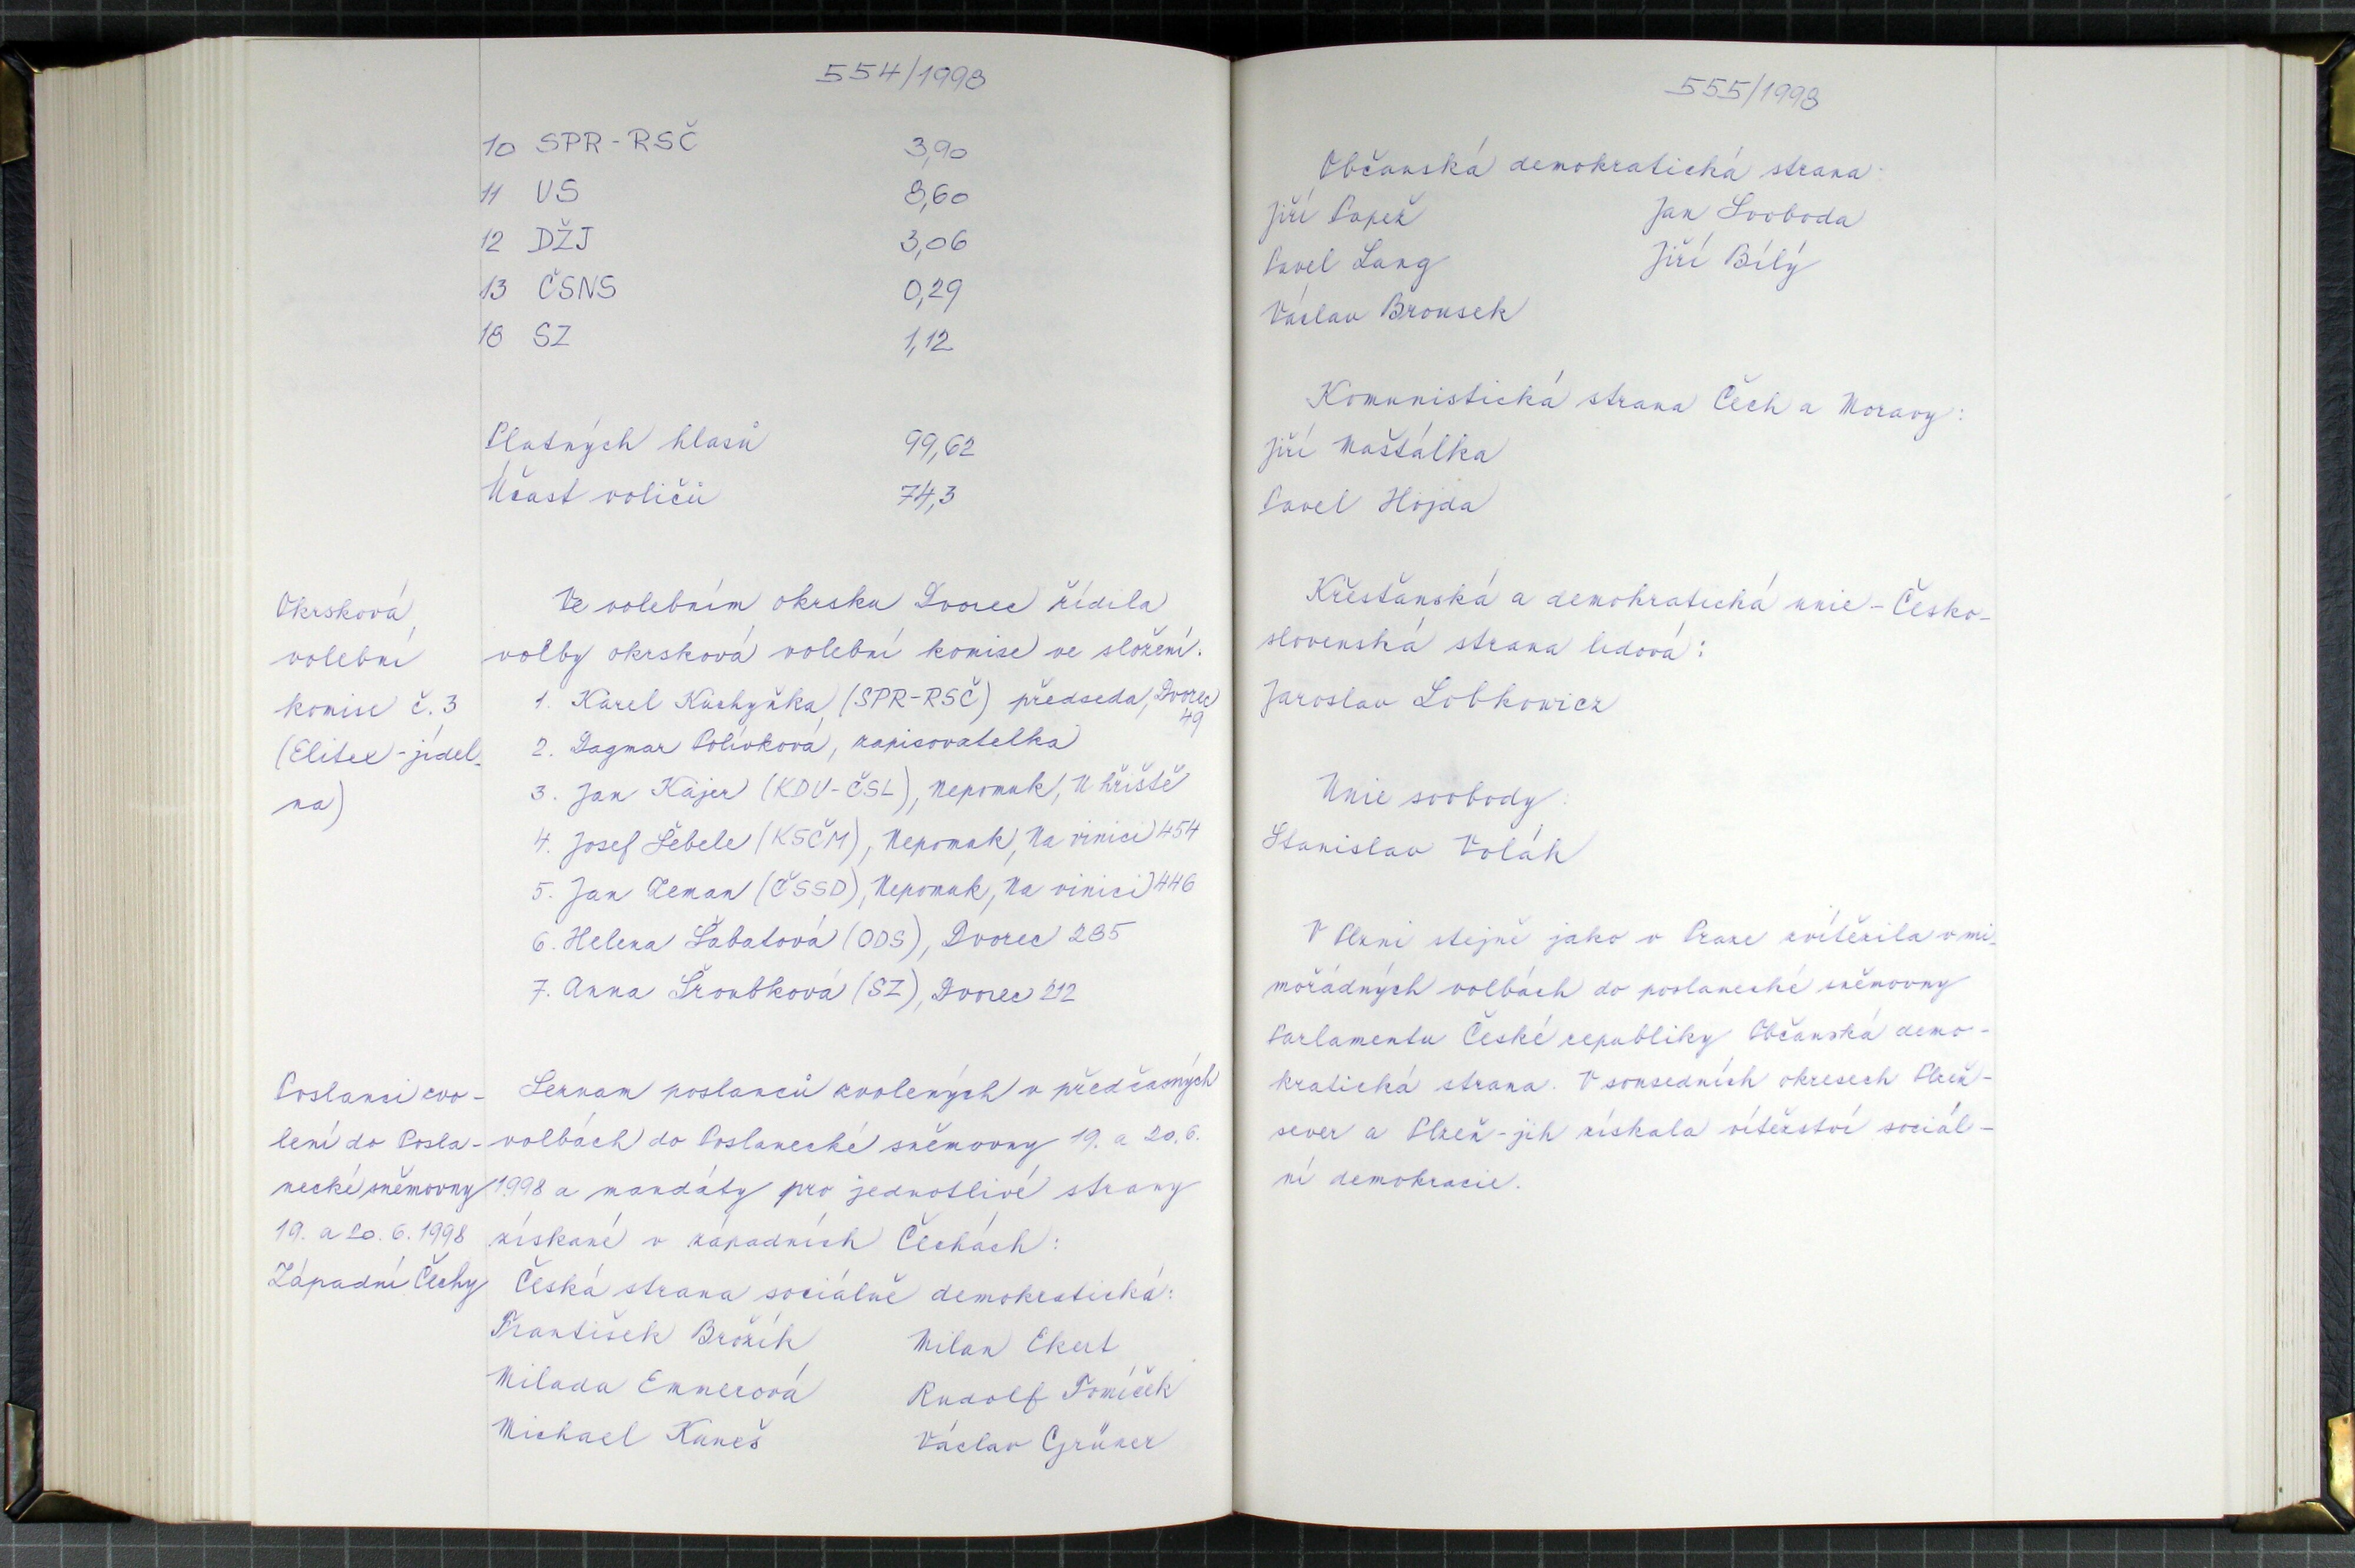 554/1998
10 SPR-RSČ 3,90
11 US 8,60
12 DŽJ 3,06
13 ČSNS 0,29
18 SZ 1,12
Platných hlasů 99,62
Účast voličů 74,3
Okrsková
volební
komise č. 3
(Elitex-jídel-
na)
Ve volebním okrsku Dvorec řídila
volby okrsková volební komise ve složení:
1. Karel Kuchyňka (SPR-RSČ) předseda, Dvorec
49
2. Dagmar Polívková, zapisovatelka
3. Jan Kájer (KDU-ČSL), Nepomuk, U hřiště
4. Josef Šebele (KSČM), Nepomuk, Na vinici 454
5. Jan Zeman (ČSSD), Nepomuk, Na vinici 446
6. Helena Šabatová (ODS), Dvorec 235
7. Anna Šroubková (SZ), Dvorec 212
Poslanci zvo-
lení do Posla-
necké sněmovny
19. a 20. 6. 1998
Západní Čechy
Seznam poslanců zvolených v předčasných
volbách do Poslanecké sněmovny 19. a 20. 6.
1998 a mandáty pro jednotlivé strany
získané v západních Čechách:
Česká strana sociálně demokratická:
František Brožík Milan Ekert
Milada Emmerová Rudolf Tomíček
Michael Kuneš Václav Grüner
555/1998
Občanská demokratická strana:
Jiří Papež Jan Svoboda
Pavel Lang Jiří Bílý
Václav Brousek
Komunistická strana Čech a Moravy:
Jiří Maštálka
Pavel Hojda
Křesťanská a demokratická unie - Česko-
slovenská strana lidová:
Jaroslav Lobkowicz
Unie svobody:
Stanislav Volák
V Plzni stejně jako v Praze zvítězila v mi-
mořádných volbách do poslanecké sněmovny
Parlamentu České republiky Občanská demo-
kratická strana. V sousedních okresech Plzeň-
sever a Plzeň-jih získala vítězství sociál-
ní demokracie.